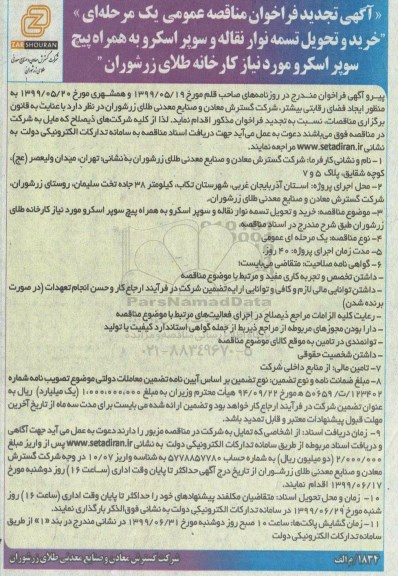 ZAR SHOURAN
شرکت گسترش معادن و صنایع معدنی طلای زرشوران
« آگهی تجدید فراخوان مناقصه عمومی یک مرحله‌ای »
"خرید و تحویل تسمه نوار نقاله و سوپر اسکرو به همراه پیچ
سوپر اسکرو مورد نیاز کارخانه طلای زرشوران"
پیرو آگهی فراخوان مندرج در روزنامه‌های صاحب قلم مورخ ۱۳۹۹/۰۵/۱۹ و همشهری مورخ ۱۳۹۹/۰۵/۲۰ به
منظور ایجاد فضای رقابتی بیشتر، شرکت گسترش معادن و صنایع معدنی طلای زرشوران در نظر دارد با عنایت به قانون
برگزاری مناقصات، نسبت به تجدید فراخوان مذکور اقدام نماید. لذا از کلیه شرکت‌های ذیصلاح که مایل به شرکت
در مناقصه فوق می‌باشند دعوت به عمل می‌آید جهت دریافت اسناد مناقصه به سامانه تدارکات الکترونیکی دولت به
نشانی www.setadiran.ir مراجعه نمایند.
۱- نام و نشانی کارفرما: شرکت گسترش معادن و صنایع معدنی طلای زرشوران به نشانی: تهران، میدان ولیعصر (عج)،
کوچه شقایق، پلاک ۵ و ۷
۲- محل اجرای پروژه: استان آذربایجان غربی، شهرستان تکاب، کیلومتر ۳۸ جاده تخت سلیمان، روستای زرشوران،
شرکت گسترش معادن و صنایع معدنی طلای زرشوران.
۳- موضوع مناقصه: خرید و تحویل تسمه نوار نقاله و سوپر اسکرو به همراه پیچ سوپر اسکرو مورد نیاز کارخانه طلای
زرشوران طبق شرح مندرج در اسناد مناقصه
۴- نوع مناقصه: یک مرحله ای عمومی
۵- مدت زمان اجرای پروژه: ۴۰ روز
۶- گواهی نامه صلاحیت: متقاضی می‌بایست:
- داشتن تخصص و تجربه کاری مفید و مرتبط با موضوع مناقصه
- داشتن توانایی مالی لازم و کافی و توانایی ارایه تضمین شرکت در فرآیند ارجاع کار و حسن انجام تعهدات (در صورت
برنده شدن)
- رعایت کلیه الزامات مراجع ذیصلاح در اجرای فعالیت‌های مرتبط با موضوع مناقصه
- دارا بودن مجوزهای مربوطه از مراجع ذیربط از جمله گواهی استاندارد کیفیت یا تولید
- توانمندی در تامین به موقع کالای موضوع مناقصه
- داشتن شخصیت حقوقی
۷- تامین مالی: از منابع داخلی شرکت
۸- مبلغ ضمانت نامه و نوع تضمین: نوع تضمین بر اساس آیین نامه تضمین معاملات دولتی موضوع تصویب نامه شماره
۱۲۳۴۰۲/ت ۵۰۶۵۹ ه مورخ ۹۴/۰۹/۲۲ هیأت محترم وزیران به مبلغ ۱،۰۰۰،۰۰۰،۰۰۰ (یک میلیارد) ریال به
عنوان تضمین شرکت در فرآیند ارجاع کار خواهد بود و تضمین ارائه شده می بایست برای مدت سه ماه از تاریخ آخرین
مهلت قبول پیشنهادات معتبر و قابل تمدید باشد.
۹- زمان دریافت اسناد: از اشخاصی که تمایل به شرکت در مناقصه مزبور را دارند دعوت به عمل می آید جهت آگاهی
و دریافت اسناد مربوطه از طریق سامانه تدارکات الکترونیکی دولت به نشانی www.setadiran.ir پس از واریز مبلغ
۲/۰۰۰/۰۰۰ (دو میلیون ریال) به شماره حساب ۵۷۷۸۸۵۷۷۸۰ به شناسه واریز ۱۰/۰۷ در وجه شرکت گسترش
معادن و صنایع معدنی طلای زرشوران از تاریخ درج آگهی حداکثر تا پایان وقت اداری (ساعت ۱۶) روز دوشنبه مورخ
۱۳۹۹/۰۶/۱۷ اقدام نمایند.
۱۰- زمان و محل تحویل اسناد: متقاضیان مکلفند پیشنهادهای خود را حداکثر تا پایان وقت اداری (ساعت ۱۶) روز
شنبه مورخ ۱۳۹۹/۰۶/۲۹ در سامانه تدارکات الکترونیکی دولت به نشانی فوق الذکر بارگذاری نمایند.
۱۱- زمان گشایش پاکت‌ها: ساعت ۱۰ صبح روز دوشنبه مورخ ۱۳۹۹/۰۶/۳۱ در نشانی مندرج در بند «۱» از طریق
سامانه تدارکات الکترونیکی دولت
۱۸۳۴ /م الف
شرکت گسترش معادن و صنایع معدنی طلای زرشوران
ParsNamadData
۰۲۱-۸۸۳۴۹۶۷۰-۵